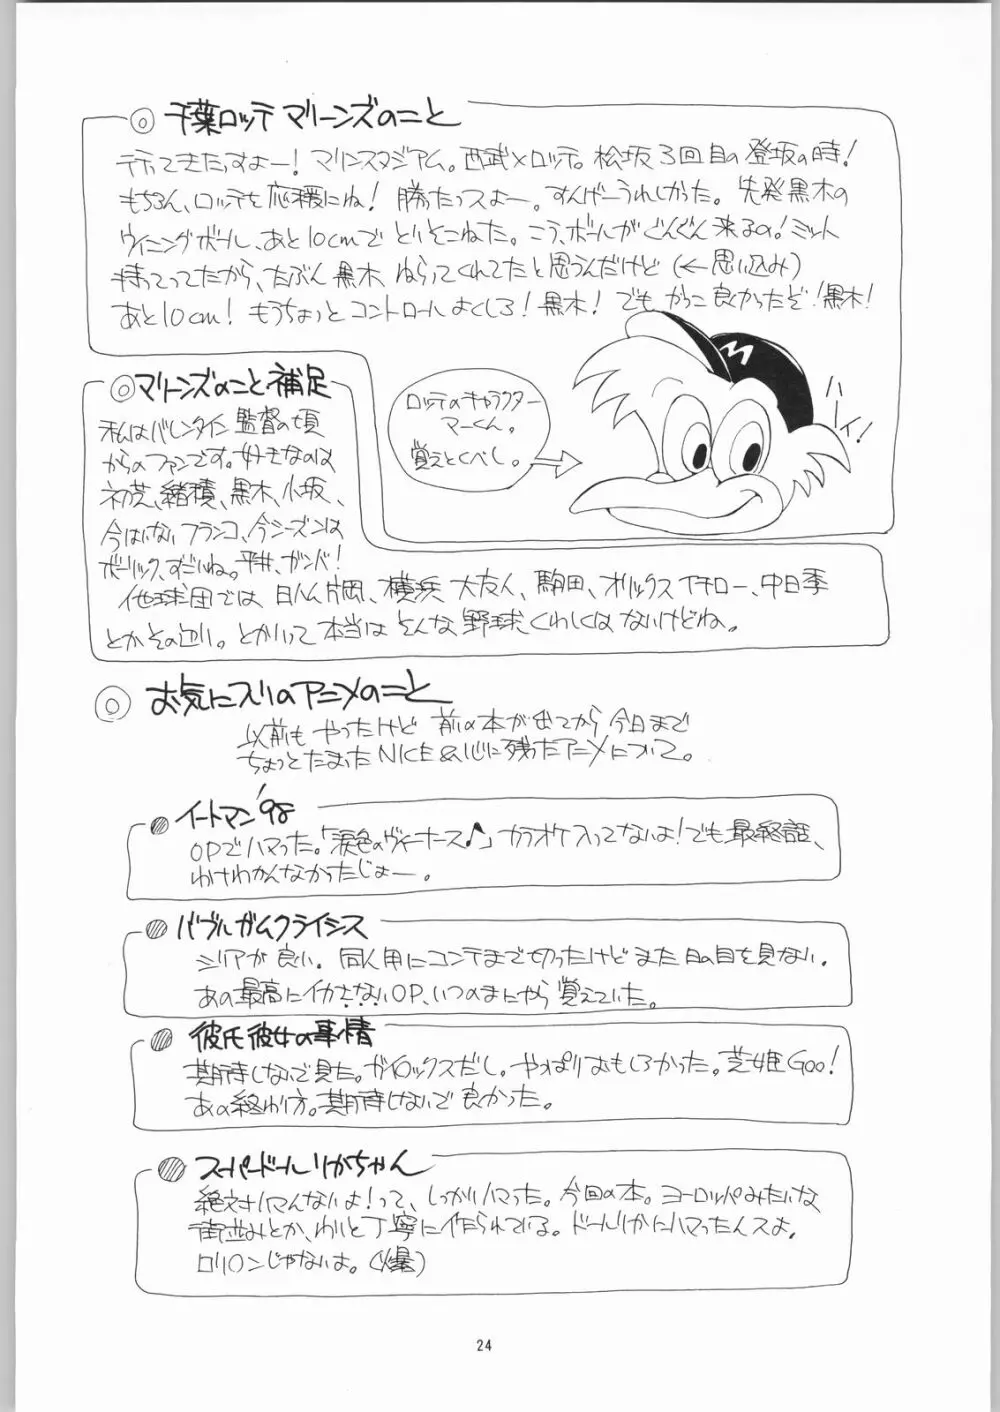 ◎ 千葉ロッテ マリーンズのこと
行ってきたっすよー！マリンスタジアム。西武×ロッテ。松坂3回目の登坂の時！
もちろん、ロッテを応援にね！勝たっスよー。すんげーうれしかった。先発黒木の
ウイニングボール、あと10cmでとりそこねた。こう、ボールがぐんぐん来るの！ミット
持ってってたから、たぶん黒木ねらってくれてたと思うんだけど（←思い込み）
あと10cm！もうちょっとコントロールよくしろ！黒木！でもかっこ良かったぞ！黒木！
ロッテのキャラクター
マーくん。
覚えとくべし。
ハーイ！
◎マリーンズのこと補足
私はバレンタイン監督の頃
からのファンです。好きなのは
初芝、諸積、黒木、小坂、
今はいないフランコ、今シーズンは
ボーリック、すごいね。平井、ガンバ！
他球団では日ハム片岡、横浜大友人、駒田、オリックスイチロー、中日李
とかその辺り。とかいって本当はそんな野球くわしくはないけどね。
◎ お気に入りのアニメのこと
以前もやったけど前の本が出てから今日まで
ちょっとたまったNICE&心に残ったアニメについて。
イートマン'98
OPでハマった。「涙色のヴィーナス♪」カラオケ入ってないよ！でも最終話、
わけわかんなかったじょー。
バブルガムクライシス
シリアが良い。同人用にコンテまで切ったけどまだ日の目を見ない。
あの最高にイカさないOP、いつのまにやら覚えていた。
彼氏彼女の事情
期待しないで見た。ガイロックスだし。やっぱりおもしろかった。芝姫Goo！
あの終わり方。期待しないで良かった。
スーパードールりかちゃん
絶対ハマんないよ！って、しっかりハマった。今回の本。ヨーロッパみたいな
街並みとか、わりと丁寧に作られている。ドールりかにハマったんスよ。
ロリロンじゃないよ。（爆）
24